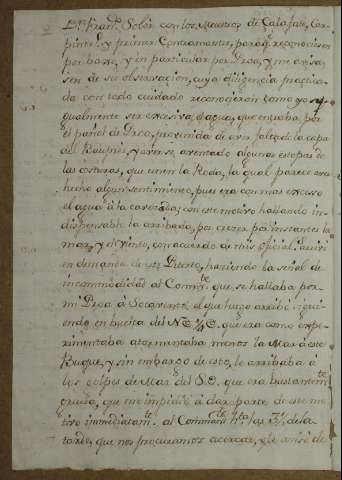 Dn. Franco. Soler con los Maestros de Calafate, Car-
pintero, y primer Contramaestre, para qe. reconociesen
por barra, y en particular por Proa, y me avisa-
sen de su observacion, cuya diligencia practica-
da con todo cuidado reconocieron como yo
igualmente ser excesiva el agua, que entraba por
el pañol de Proa, provenida de aver faltado la capa
del Bauprés, y averse aventado algunas estopas de
las costuras, que unen la Roda, la qual parece avia
hecho algun sentimiento, pues era con mas exceso
el agua á las cavezadas; con este motivo hallando in-
dispensable la arribada, por crecer por instantes la
mar, y el viento, con acuerdo de mis oficiales arrivé
en demanda de este Puerto, haciendo la señal de
incommodidad al Commte. que se hallaba por
mi Proa á Sotavento, al que luego arribé sigui-
endo en buelta del NE 1/4 E. que era como expe-
rimentaba atormentaba menos la Mar á este
Buque, y sin embargo de esto, le arribaba á
los golpes de Mar del SO. que era bastantemte.
gruesa, que me impidió á dar parte de este mo-
tivo immediatamte. al Commte. hta. las 3 1/2 de la
tarde, que nos procuramos acercar, y le avisé de